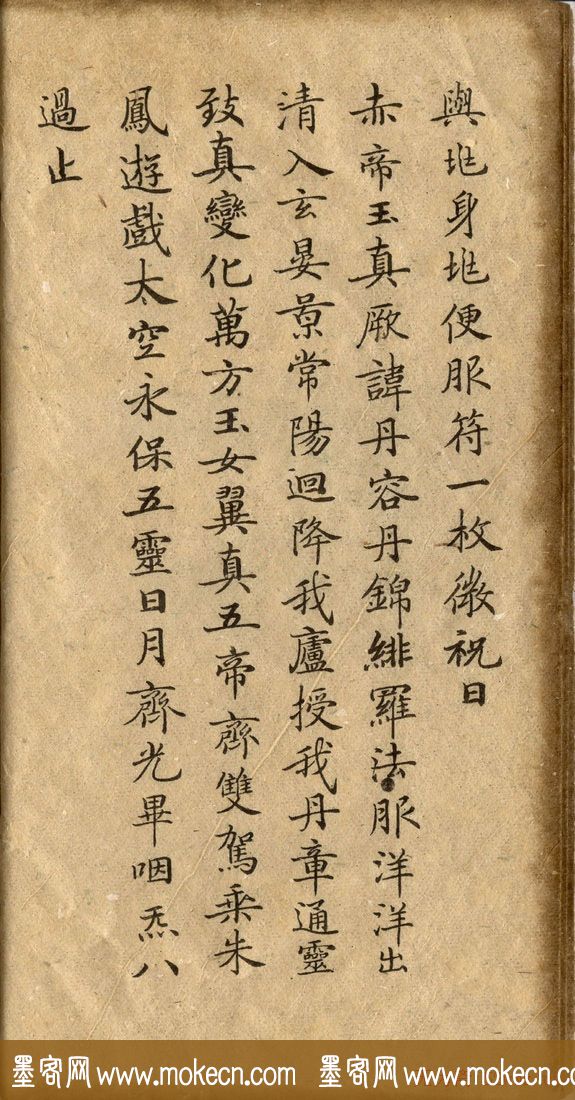 與形身形便服符一枚微祝曰
赤帝玉真厥諱丹容丹錦緋羅法服洋洋出
清入玄晏景常陽迴降我廬授我丹章通靈
致真變化萬方玉女翼真五帝齊雙駕乘朱
鳳遊戲太空永保五靈日月齊光畢咽炁八
過止
墨客网 www.mokecn.com 墨客网 www.mokecn.com